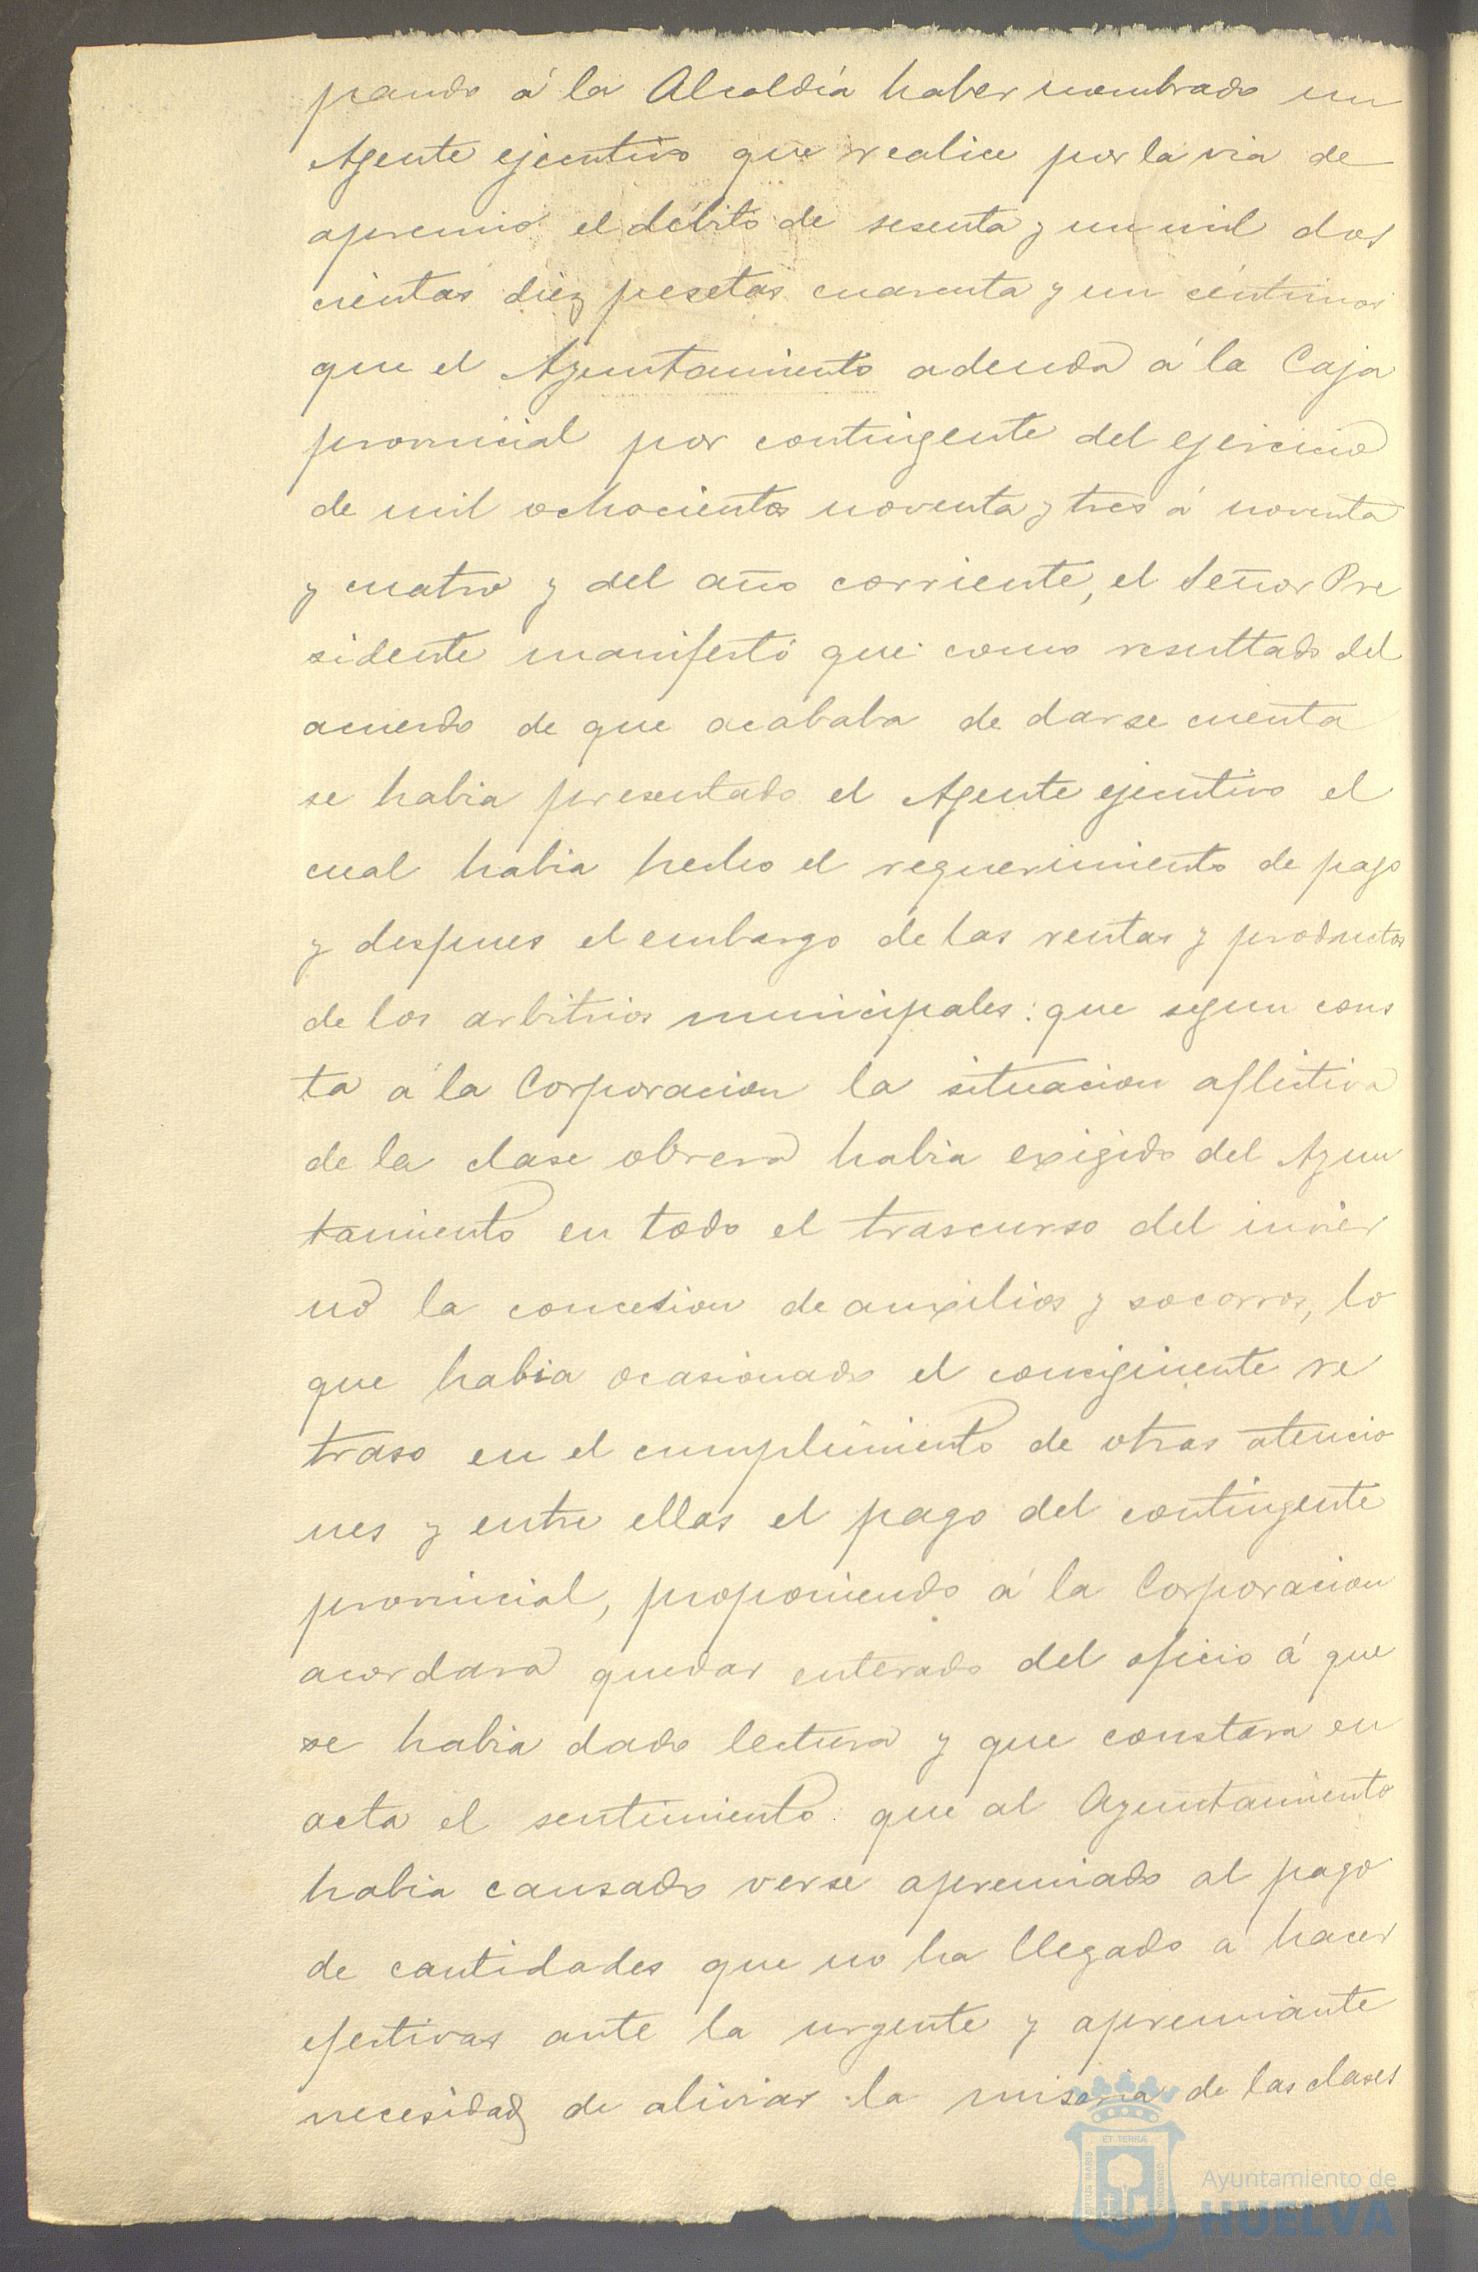 pando á la Alcaldía haber nombrado un
Agente ejecutivo que realice por la via de
apremio el débito de sesenta y un mil dos
cientas diez pesetas cuarenta y un céntimos
que el Ayuntamiento adeuda á la Caja
provincial por contingente del ejercicio
de mil ochocientos noventa y tres á noventa
y cuatro y del año corriente, el Señor Pre
sidente manifestó que como resultado del
acuerdo de que acababa de darse cuenta
se habia presentado el Agente ejecutivo el
cual habia hecho el requerimiento de pago
y despues el embargo de las rentas y productos
de los arbitrios municipales: que segun cons
ta á la Corporacion la situacion aflictiva
de la clase obrera habia exigido del Ayun
tamiento en todo el trascurso del invier
no la concesion de auxilios y socorros, lo
que habia ocasionado el consiguiente re
traso en el cumplimiento de otras atencio
nes y entre ellas el pago del contingente
provincial, proponiendo á la Corporacion
acordara quedar enterado del oficio á que
se habia dado lectura y que constara en
acta el sentimiento que al Ayuntamiento
habia causado verse apremiado al pago
de cantidades que no ha llegado á hacer
efectivas ante la urgente y apremiante
necesidad de aliviar la miseria de las clases
ET TERRÆ
PORTUS MARIS
CUSTODIA
Ayuntamiento de
HUELVA